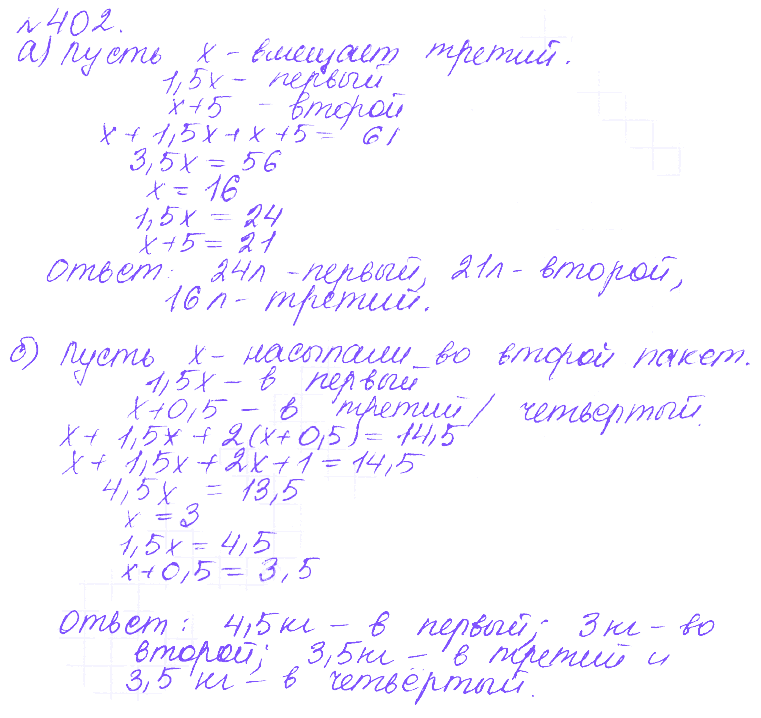 №402.
а) Пусть x - вмещает третий.
1,5x - первый
x+5 - второй
x + 1,5x + x + 5 = 61
3,5x = 56
x = 16
1,5x = 24
x+5 = 21
Ответ: 24л - первый, 21л - второй,
16л - третий.
б) Пусть x - насыпали во второй пакет.
1,5x - в первый
x+0,5 - в третий / четвертый.
x + 1,5x + 2(x+0,5) = 14,5
x + 1,5x + 2x + 1 = 14,5
4,5x = 13,5
x = 3
1,5x = 4,5
x+0,5 = 3,5
Ответ: 4,5кг - в первый; 3кг - во
второй; 3,5кг - в третий и
3,5 кг - в четвёртый.